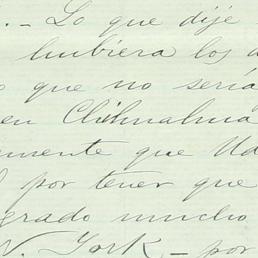 . - Lo que dije
hubiera los
que no sería
en Chihuahua
mente que Ud
por tener que
grado mucho
N. York - por